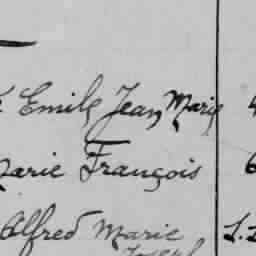 Emile Jean Marie
Marie François
Alfred Marie
Joseph